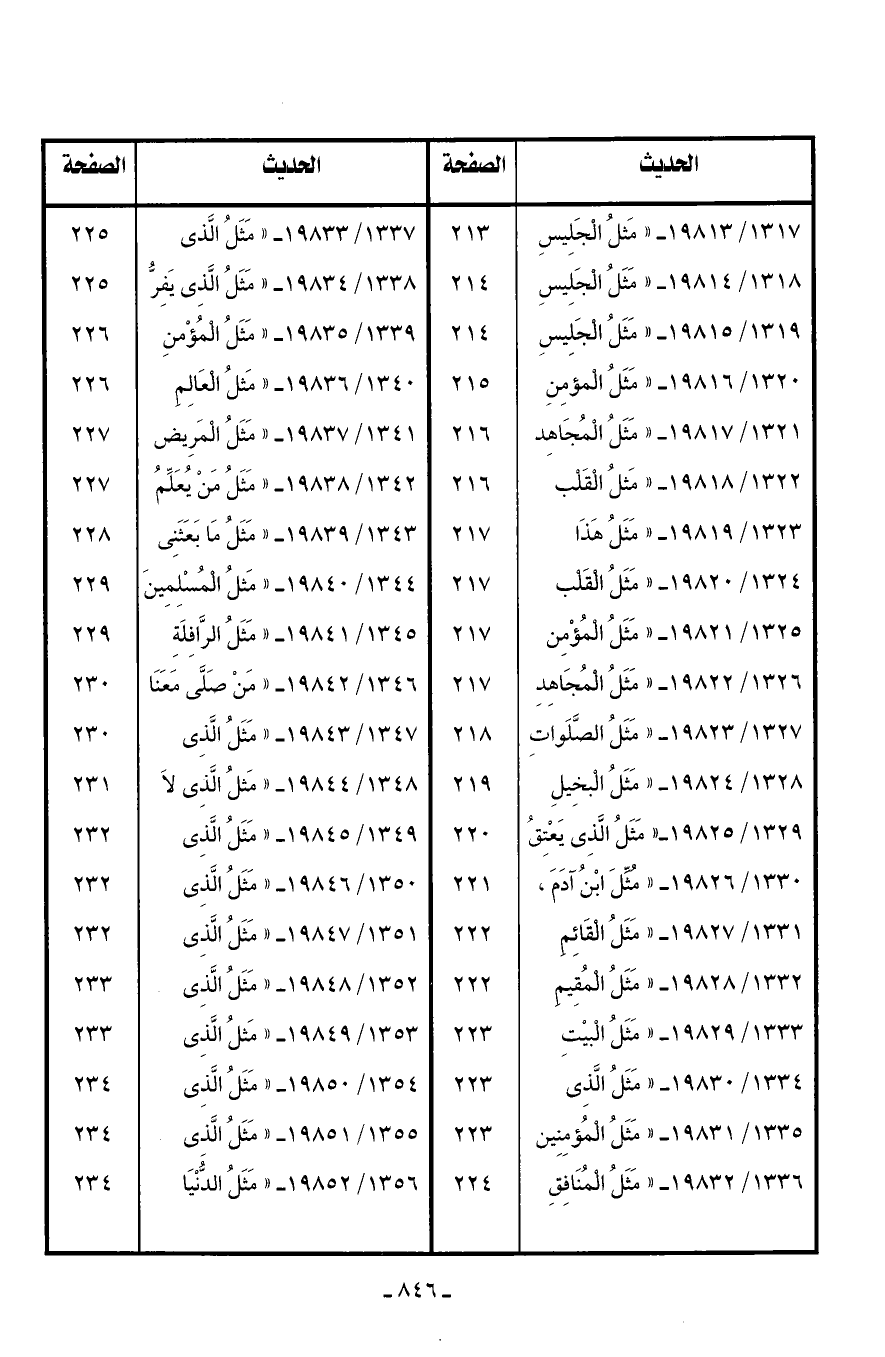 الحديث الصفحة
١٣١٧/ ١٩٨١٣ـ « مَثلُ الْجَلِيسِ ٢١٣
١٣١٨/ ١٩٨١٤ـ « مَثَلُ الْجَلِيسِ ٢١٤
١٣١٩/ ١٩٨١٥ـ « مَثَلُ الْجَلِيسِ ٢١٤
١٣٢٠/ ١٩٨١٦ـ « مَثَلُ المؤمِنِ ٢١٥
١٣٢١/ ١٩٨١٧ـ « مَثَلُ الْمُجَاهِدِ ٢١٦
١٣٢٢/ ١٩٨١٨ـ « مَثلُ الْقَلْبِ ٢١٦
١٣٢٣/ ١٩٨١٩ـ « مَثَلُ هَذَا ٢١٧
١٣٢٤/ ١٩٨٢٠ـ « مَثلُ الْقَلْبِ ٢١٧
١٣٢٥/ ١٩٨٢١ـ « مَثَلُ الْمُؤْمِنِ ٢١٧
١٣٢٦/ ١٩٨٢٢ـ « مَثَلُ الْمُجَاهِدِ ٢١٧
١٣٢٧/ ١٩٨٢٣ـ « مَثَلُ الصَّلَوَاتِ ٢١٨
١٣٢٨/ ١٩٨٢٤ـ « مَثَلُ الْبَخِيلِ ٢١٩
١٣٢٩/ ١٩٨٢٥ـ « مَثَلُ الَّذِى يَعْتِقُ ٢٢٠
١٣٣٠/ ١٩٨٢٦ـ « مُثِّلَ ابْنُ آدَمَ ، ٢٢١
١٣٣١/ ١٩٨٢٧ـ « مَثَلُ الْقَائِمِ ٢٢٢
١٣٣٢/ ١٩٨٢٨ـ « مَثَلُ الْمُقِيمِ ٢٢٢
١٣٣٣/ ١٩٨٢٩ـ « مَثَلُ الْبَيْتِ ٢٢٣
١٣٣٤/ ١٩٨٣٠ـ « مَثَلُ الَّذِى ٢٢٣
١٣٣٥/ ١٩٨٣١ـ « مَثَلُ الْمُؤمِنِين ٢٢٣
١٣٣٦/ ١٩٨٣٢ـ « مَثَلُ الْمُنَافِقِ ٢٢٤
الحديث الصفحة
١٣٣٧/ ١٩٨٣٣ـ « مَثَلُ الَّذِى ٢٢٥
١٣٣٨/ ١٩٨٣٤ـ « مَثَلُ الَّذِى يَفِرُّ ٢٢٥
١٣٣٩/ ١٩٨٣٥ـ « مَثَلُ الْمُؤْمنِ ٢٢٦
١٣٤٠/ ١٩٨٣٦ـ « مَثلُ الْعَالِمِ ٢٢٦
١٣٤١/ ١٩٨٣٧ـ « مَثَلُ الْمَرِيضِ ٢٢٧
١٣٤٢/ ١٩٨٣٨ـ « مَثَلُ مَنْ يُعَلِّمُ ٢٢٧
١٣٤٣/ ١٩٨٣٩ـ « مَثَلُ مَا بَعَثَنِى ٢٢٨
١٣٤٤/ ١٩٨٤٠ـ « مَثلُ الْمُسْلِمِينَ ٢٢٩
١٣٤٥/ ١٩٨٤١ـ « مَثَلُ الرَّافِلَةِ ٢٢٩
١٣٤٦/ ١٩٨٤٢ـ « مَنْ صَلَّى مَعَنَا ٢٣٠
١٣٤٧/ ١٩٨٤٣ـ « مَثَلُ الَّذِى ٢٣٠
١٣٤٨/ ١٩٨٤٤ـ « مَثلُ الَّذِى لاَ ٢٣١
١٣٤٩/ ١٩٨٤٥ـ « مَثَلُ الَّذِى ٢٣٢
١٣٥٠/ ١٩٨٤٦ـ « مَثَلُ الَّذِى ٢٣٢
١٣٥١/ ١٩٨٤٧ـ « مَثَلُ الَّذِى ٢٣٢
١٣٥٢/ ١٩٨٤٨ـ « مَثَلُ الَّذِى ٢٣٣
١٣٥٣/ ١٩٨٤٩ـ « مَثلُ الَّذِى ٢٣٣
١٣٥٤/ ١٩٨٥٠ـ « مَثَلُ الَّذِى ٢٣٤
١٣٥٥/ ١٩٨٥١ـ « مَثَلُ الَّذِى ٢٣٤
١٣٥٦/ ١٩٨٥٢ـ « مَثَلُ الدُّنْيَا ٢٣٤
ـ ٨٤٦ ـ